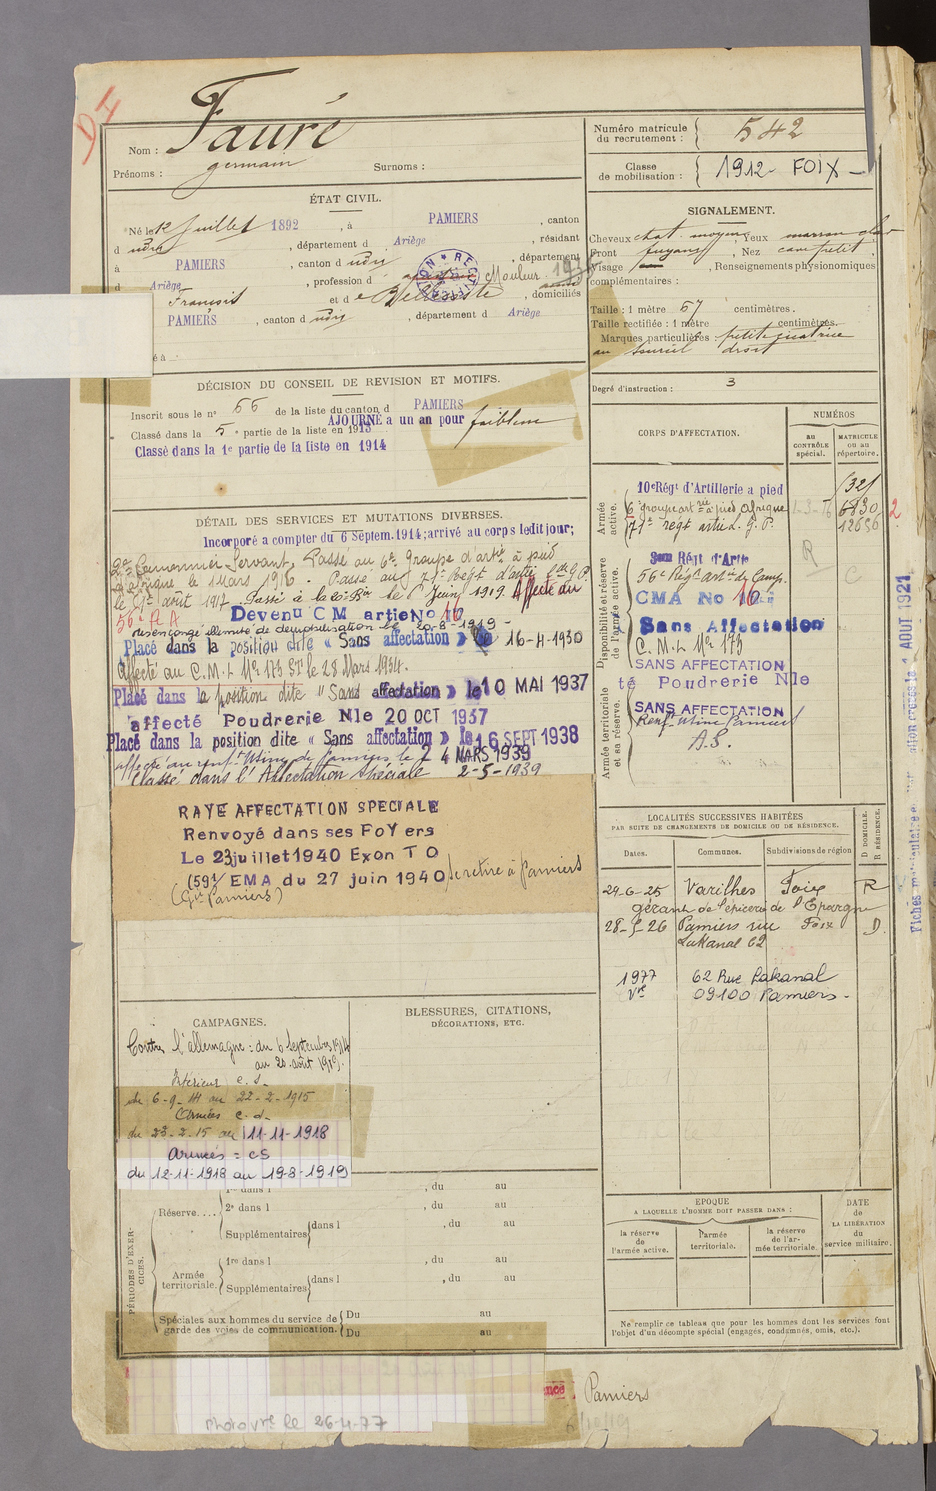 D I
Nom : Fauré
Prénoms : germain Surnoms :
Numéro matricule du recrutement : 542
Classe de mobilisation : 1912 - FOIX -
ÉTAT CIVIL.
Né le 12 Juillet 1892, à PAMIERS, canton
d udry, département d Ariège, résidant
à PAMIERS, canton d udry, département
d Ariège, profession d Mouleur
François et d e Bellesoste, domiciliés
PAMIERS, canton d udry, département d Ariège
é à
SIGNALEMENT.
Cheveux chat. moyens, Yeux marron clair
Front fuyant, Nez cave petit,
Visage, Renseignements physionomiques
complémentaires :
Taille : 1 mètre 57 centimètres.
Taille rectifiée : 1 mètre centimètres.
Marques particulières : petite cicatrice
au sourcil droit
Degré d'instruction : 3
DÉCISION DU CONSEIL DE REVISION ET MOTIFS.
Inscrit sous le n° 66 de la liste du canton d PAMIERS
AJOURNÉ a un an pour faiblesse
Classé dans la 5e partie de la liste en 1913
Classé dans la 1e partie de la liste en 1914
CORPS D'AFFECTATION.
NUMÉROS
au CONTRÔLE spécial.
MATRICULE ou au répertoire.
Armée active.
10e Régt d'Artillerie a pied 1321
6 groupe artrie à pied Afrique 6830 2
71e regt artie d. G. P. 12636
Disponibilité et réserve de l'armée active.
Régt d'Artie
56e Régt artie de Camp.
CMA No 16
Sans Affectation
C. M. L No 173
SANS AFFECTATION
té Poudrerie Nle
Armée territoriale et sa réserve.
SANS AFFECTATION
Renf. Usine Pamiers
A.S.
R
C
DÉTAIL DES SERVICES ET MUTATIONS DIVERSES.
Incorporé a compter du 6 Septem. 1914; arrivé au corps ledit jour;
2e Canonnier Servant, Passé au 6e Groupe d'artie à pied
d'afrique le 1 Mars 1916. Passé au 71e Regt d'artie G. P.
le 1er août 1917. Passé à la 20e Bie le 1er Juin 1919. Affecté au
56e R A
Devenu C M artie No 16
démobilisation le 20-8-1919 -
Placé dans la position dite « Sans affectation » le 16-4-1930
Affecté au C.M.L No 173 ST le 28 Mars 1934.
Placé dans la position dite « Sans affectation » le 10 MAI 1937
affecté Poudrerie Nle 20 OCT 1937
Placé dans la position dite « Sans affectation » le 16 SEPT 1938
affecté au renft Usine de Pamiers le 24 MARS 1939
Classé dans l'Affectation Spéciale 2-5-1939
RAYE AFFECTATION SPECIALE
Renvoyé dans ses FoYers
Le 23 juillet 1940 Exon T O
(59e/ EMA du 27 juin 1940 se retire à Pamiers
(Gie Pamiers)
LOCALITÉS SUCCESSIVES HABITÉES
PAR SUITE DE CHANGEMENTS DE DOMICILE OU DE RÉSIDENCE.
D DOMICILE.
R RÉSIDENCE.
Dates. Communes. Subdivisions de région
29-6-25 Varilhes Foix R
gérant de l'épicerie de l'Epargne
28-5-26 Pamiers rue Foix D.
Lakanal 62
1977 62 Rue Lakanal
Vve 09100 Pamiers -
CAMPAGNES.
Contre l'allemagne : du 6 Septembre 1914
au 20 août 1919.
Intérieur c. s.
du 6-9-14 au 22-2-1915
Armées c. d.
du 23-2-15 au 11-11-1918
armées = cs
du 12-11-1918 au 19-8-1919
BLESSURES, CITATIONS,
DÉCORATIONS, ETC.
PÉRIODES D'EXERCICES.
1re dans l , du au
Réserve.... 2e dans l , du au
Supplémentaires dans l , du au
Armée territoriale. 1re dans l , du au
Supplémentaires dans l , du au
Spéciales aux hommes du service de garde des voies de communication. Du au
Du au
EPOQUE
A LAQUELLE L'HOMME DOIT PASSER DANS :
la réserve de l'armée active.
l'armée territoriale.
la réserve de l'armée territoriale.
DATE de LA LIBÉRATION du service militaire.
Ne remplir ce tableau que pour les hommes dont les services font
l'objet d'un décompte spécial (engagés, condamnés, omis, etc.).
Pamiers
photo vve le 26-4-77
AOUT 1921